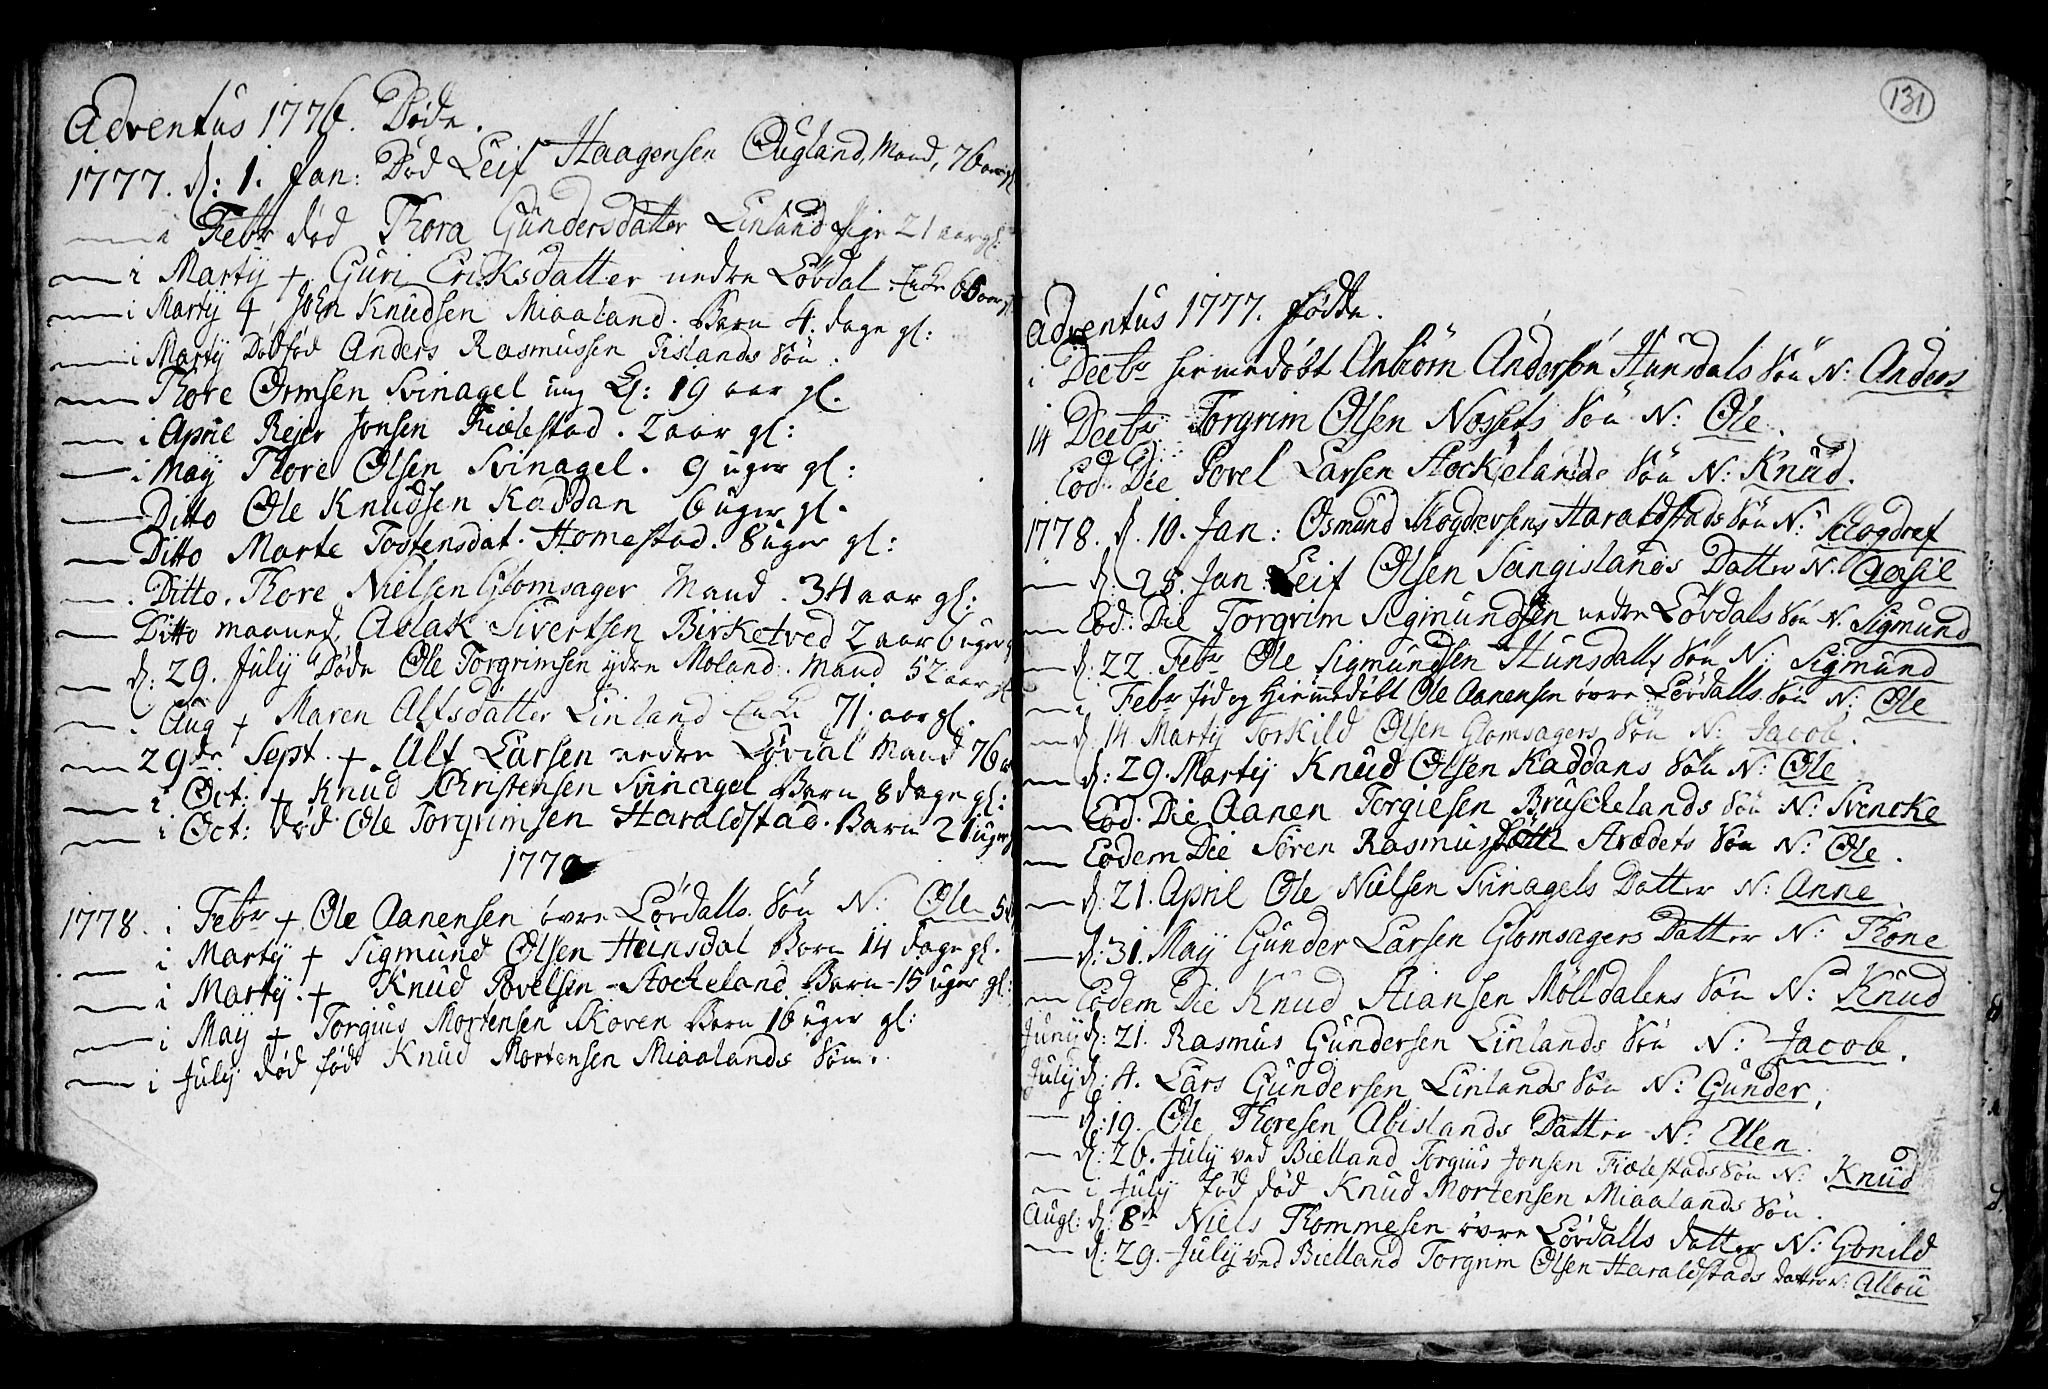 Adventus 1776. Døde.
1777. d: 1. Jan: Død Leif Haagensen Øugland, Mand, 76 aar gl
i Febr død Thora Gundersdatter Linland Pige 21 aar gl:
i Martij + Guri Eriksdatter nedre Løvdal Enke 66 aar gl
i Martij + John Knudsen Miaaland. Barn 4. dage gl:
i Martij Dødfød Anders Rasmussen Fislands Søn.
Thore Ormsen Svinagel ung K: 19 aar gl.
i April Rejer Jonsen Fiælestad. 2 aar gl:
i May Thore Olsen Svinagel. 9 uger gl:
Ditto Ole Knudsen Kaddan 6 uger gl.
Ditto Marte Tostensdat. Homestad. 8 uger gl:
Ditto. Thore Nielsen Glomsager Mand. 34 aar gl:
Ditto maaned, Aslak Sivertsen Birketved 2 aar 6 uger g
d: 29. July Døde Ole Torgrimsen ydre Moland. Mand 52 aar gl
Aug + Maren Alfsdatter Linland Enke 71. aar gl.
29de Sept. + Alf Larsen nedre Løvdal Mand 76
i Oct: + Knud Christensen Svinagel Barn 8 dage gl:
i Oct: død Ole Torgrimsen Haraldstad. Barn 21 uger
177
1778. i Febr + Ole Aanensen øvre Løvdalls Søn N: Ole 5
i Martij + Sigmund Olsen Hunsdal Barn 14 dage gl.
i Martij. + Knud Povelsen Stockeland Barn 15 uger gl:
i May + Torgius Mortensen Skoven Barn 10 uger gl:
i July død fød Knud Mortensen Miaalands Søn.
131
Adventus 1777. fødde.
i Decbr hiemmedøbt Anbiörn Andersøn Hunsdals Søn N: Anders
14 Decbr Torgrim Olsen Nossets Søn N: Ole.
Eod: Die Povel Larsen Stockelands Søn N: Knud.
1778. d. 10. Jan: Osmund Skogdrevsens Haraldstads Søn N: Skogdref
d: 25. Jan: Leif Olsen Sangislands Datter N: Aasil
Eod: Die Torgrim Sigmundsen nedre Løvdals Søn N. Sigmund
d: 22. Febr Ole Sigmundsen Hunsdalls Søn N: Sigmund
i Febr fød og hiemmedøbt Ole Aanensen øvre Løvdalls Søn N: Ole
d: 14. Martij Torkild Olsen Glomsagers Søn N: Jacob.
d: 29. Martij Knud Olsen Kaddans Søn N: Ole
Eod. Die Aanen Torgiesen Bruskelands Søn N: Svencke
Eodem Die Søren Rasmus Aræders Søn N: Ole.
d: 21. April Ole Nielsen Svinagels Datter N: Anne.
d: 31. May Gunder Larsen Glomsagers Datter N: Thone
Eodem Die Knud Stiansen Mølldalens Søn N: Knud
Junij d: 21. Rasmus Gundersen Linlands Søn N: Jacob.
Julij d: 4. Lars Gundersen Linlands Søn N: Gunder,
d: 19. Ole Thoresen Abislands Datter N: Ellen.
d: 26. July ved Bielland Torgius Jonsen Fiælestads Søn N: Knud
i July fød død Knud Mortensen Miaalands Søn.
Augl: d: 8de Niels Thommesen øvre Løvdalls datter N: Gonild
d: 29. July ved Bielland Torgrim Olsen Haraldstads datter N: Allou